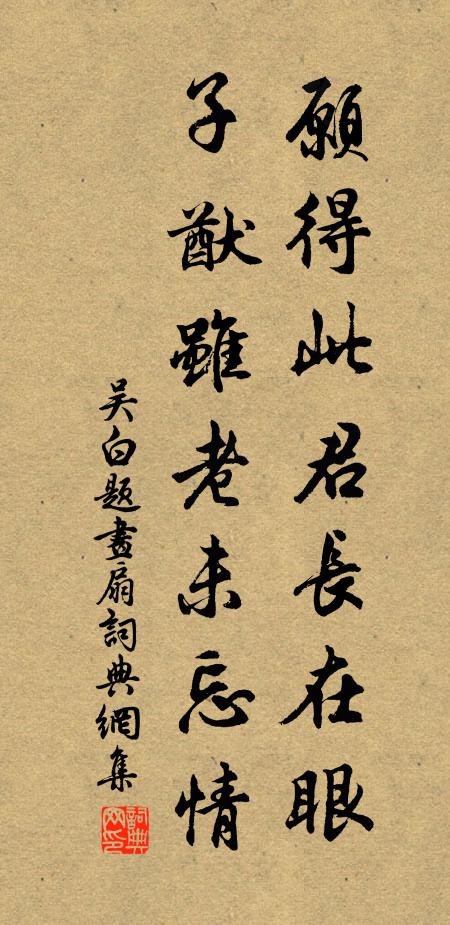 願得此君長在眼
子猷雖老未忘情
吳白題畫扇詞典網集
詞典網印